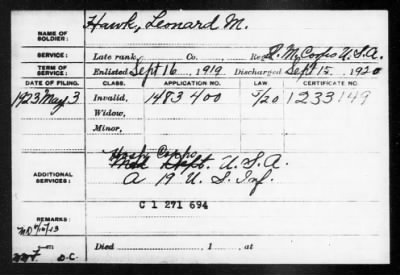 NAME OF SOLDIER: Hawk, Leonard M.
SERVICE: Late rank, Co. Reg. Q. M. Corps U.S.A.
TERM OF SERVICE: Enlisted Sept 16, 1919. Discharged Sept 15, 1920
DATE OF FILING. CLASS. APPLICATION NO. LAW. CERTIFICATE NO.
1923 May 3 Invalid, 1483400 5/20 1233149
Widow,
Minor,
ADDITIONAL SERVICES: Hosp Corps
Med Dept. U.S.A.
A 19 U.S. Inf.
C 1 271 694
REMARKS:
D.C.
Died , 1 , at